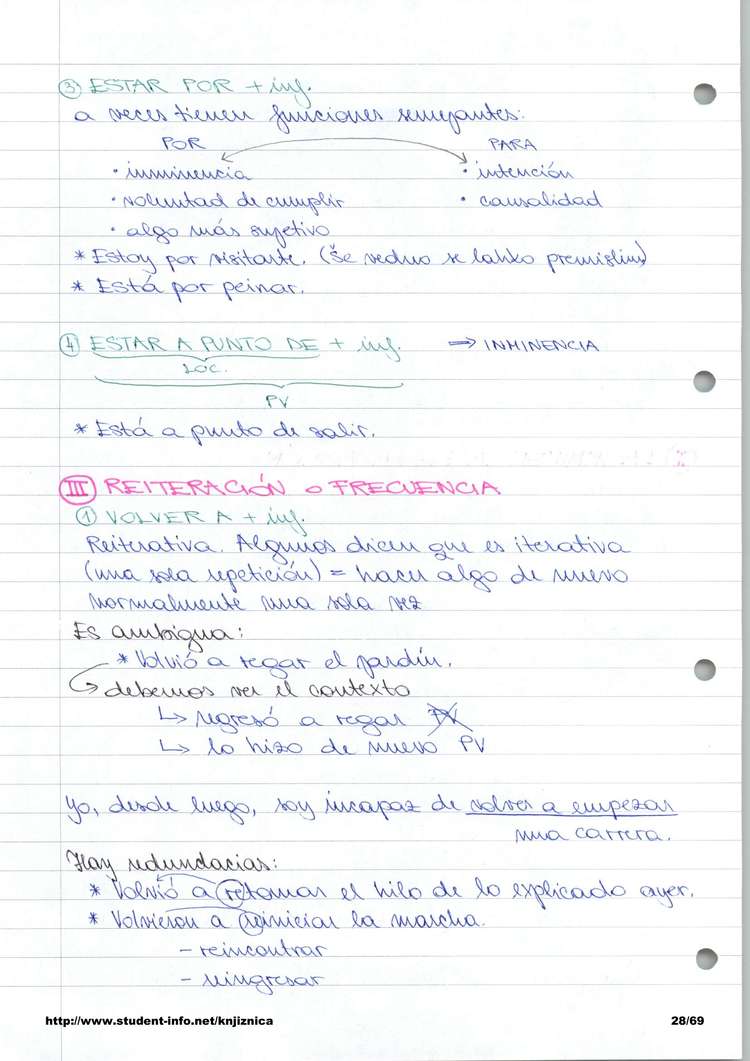 ③ ESTAR POR + inf.
a veces tienen funciones semejantes:
POR PARA
• inminencia • intención
• voluntad de cumplir • causalidad
• algo más sujetivo
* Estoy por visitarte. (Še vedno se lahko premislim)
* Está por peinar.
④ ESTAR A PUNTO DE + inf. ⇒ INMINENCIA
LOC.
PV
* Está a punto de salir.
III REITERACIÓN o FRECUENCIA
① VOLVER A + inf.
Reiterativa. Algunos dicen que es iterativa
(una sola repetición) = hacer algo de nuevo
normalmente una sola vez
Es ambigua:
* Volvió a regar el jardín.
↳ debemos ver el contexto
↳ regresó a regar PV
↳ lo hizo de nuevo PV
Yo, desde luego, soy incapaz de volver a empezar
una carrera.
Hay redundacias:
* Volvió a retomar el hilo de lo explicado ayer.
* Volvieron a reiniciar la marcha.
- reincontrar
- reingresar
http://www.student-info.net/knjiznica 28/69